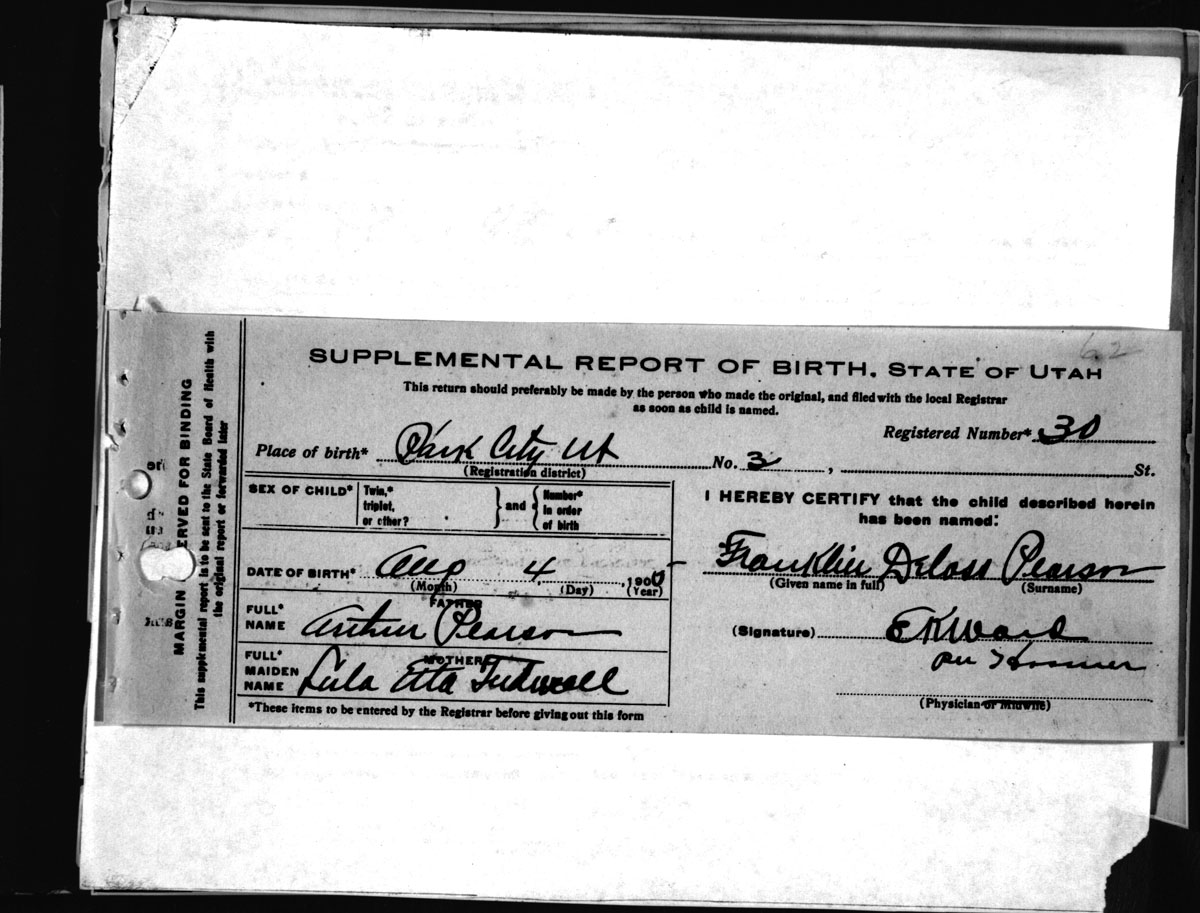 62
SUPPLEMENTAL REPORT OF BIRTH, STATE OF UTAH
This return should preferably be made by the person who made the original, and filed with the local Registrar
as soon as child is named.
Registered Number* 30
Place of birth* Park City Ut No. 3 , St.
(Registration district)
SEX OF CHILD* Twin,* triplet, or other? and Number* in order of birth
DATE OF BIRTH* Aug 4, 190
(Month) (Day) (Year)
FATHER
FULL* NAME Arthur Pearson
MOTHER
FULL* MAIDEN NAME Lula Etta Tidwell
*These items to be entered by the Registrar before giving out this form
I HEREBY CERTIFY that the child described herein
has been named:
Franklin Deloss Pearson
(Given name in full) (Surname)
(Signature) EKWard
per Hosmer
(Physician or Midwife)
MARGIN ERVED FOR BINDING
This supplemental report is to be sent to the State Board of Health with
the original report or forwarded later